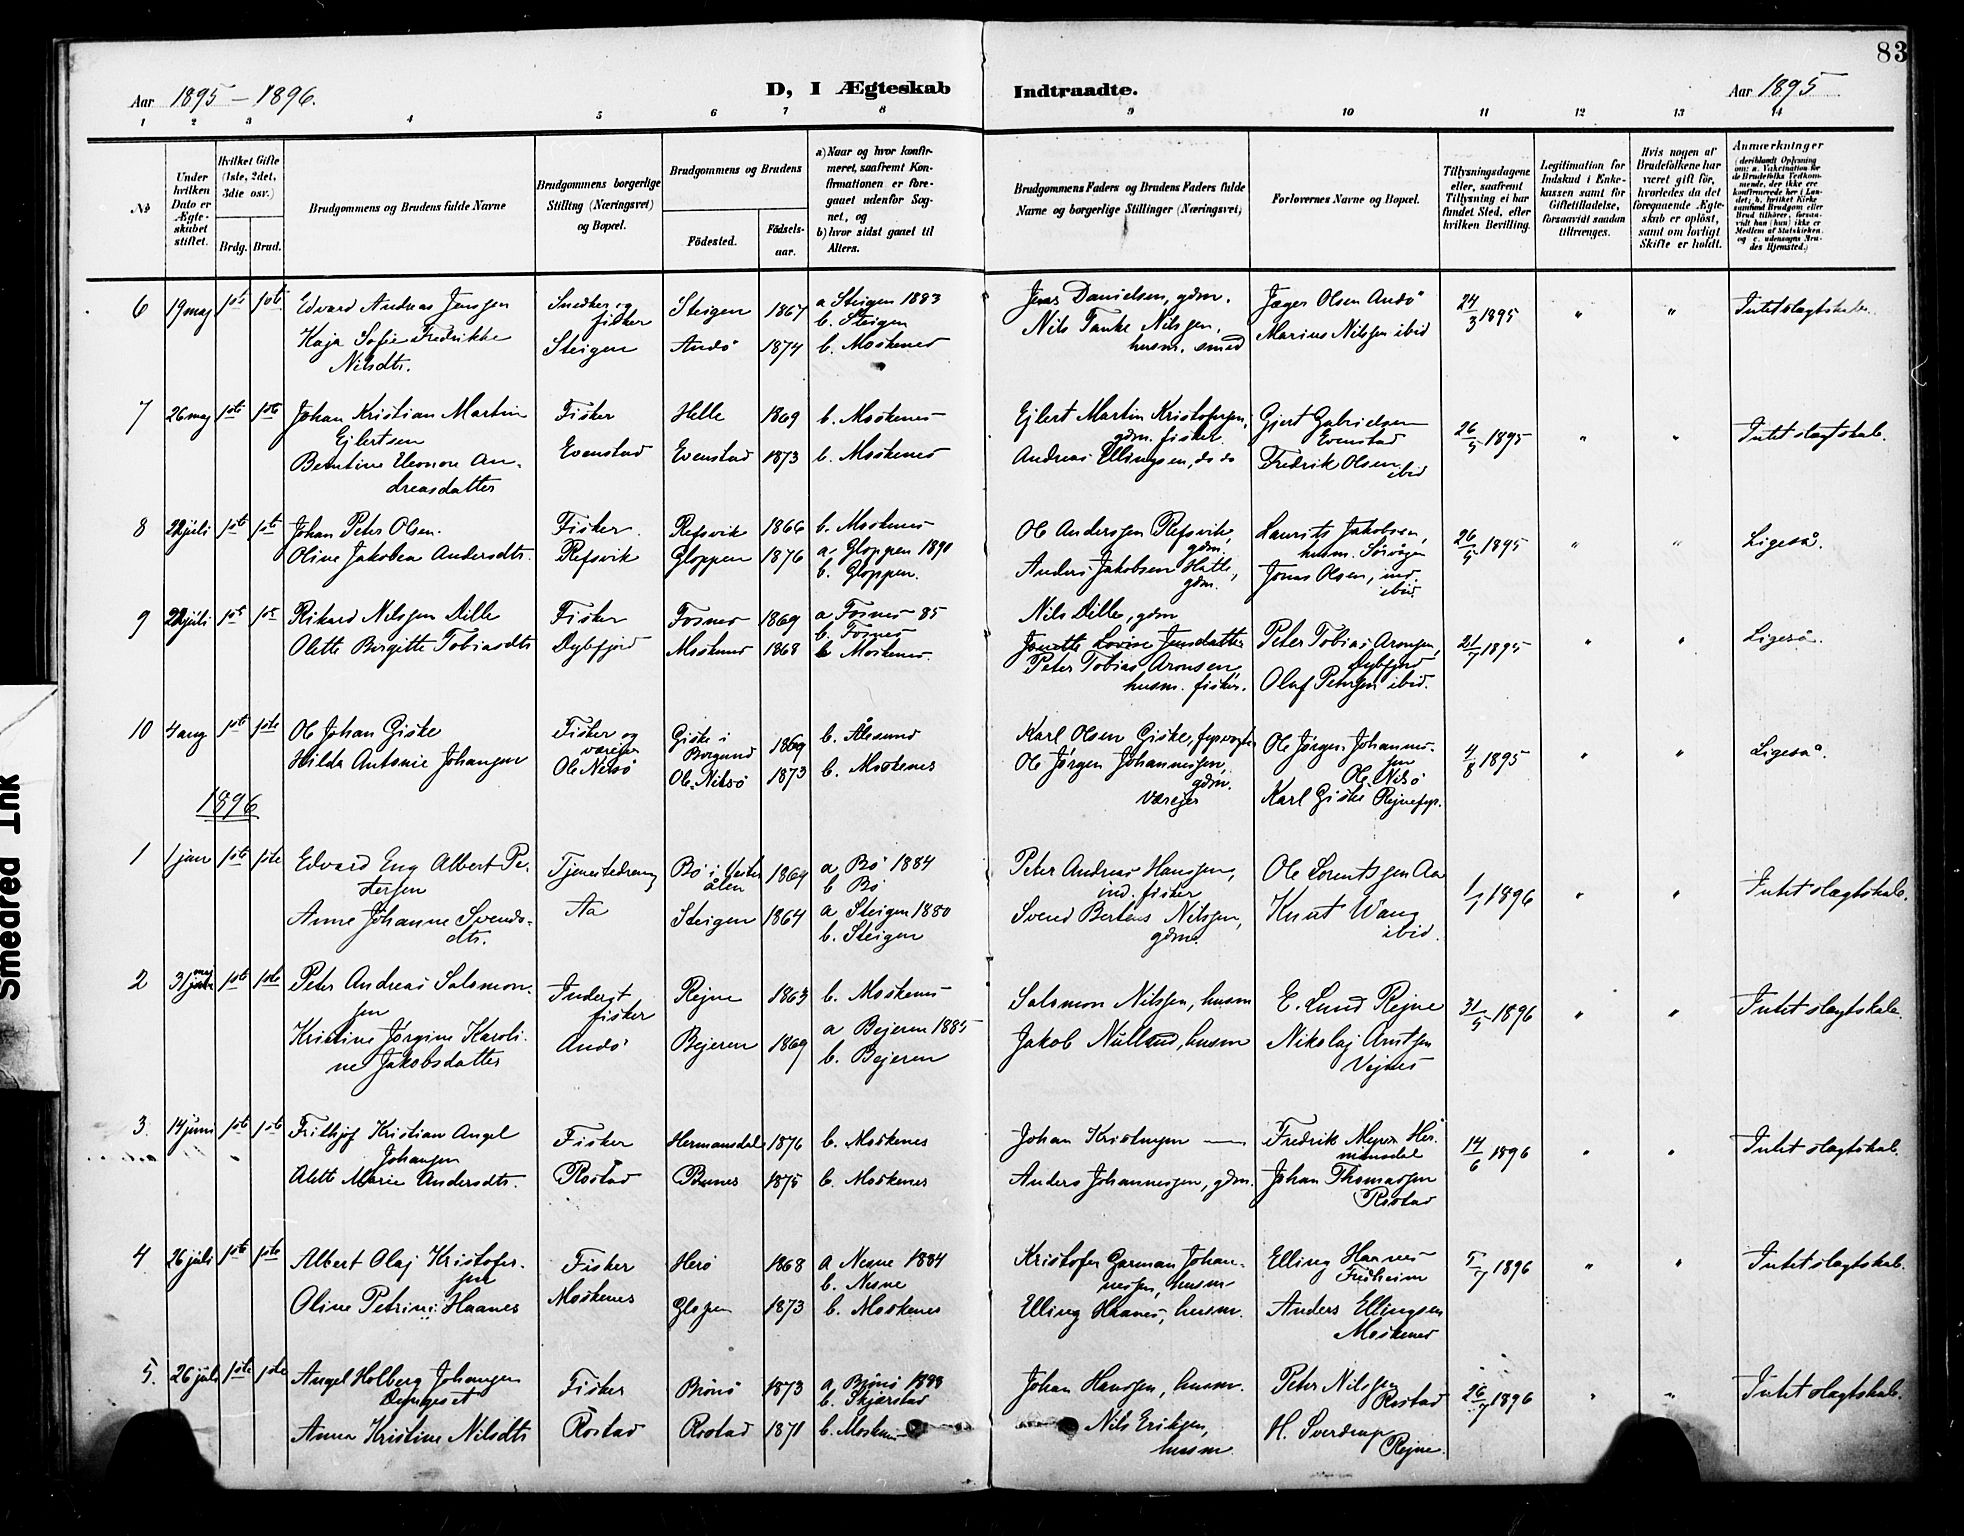 83
Aar 1895 - 1896.
D, I Ægteskab
Indtraadte.
Aar 1895
1 2 3 4 5 6 7 8 9 10 11 12 13 14
№
Under hvilken Dato er Ægteskabet stiftet.
Hvilket Gifte (1ste, 2det, 3die osv.)
Brdg. Brud.
Brudgommens og Brudens fulde Navne
Brudgommens borgerlige Stilling (Næringsvei) og Bopæl.
Brudgommens og Brudens
Fødested.
Fødselsaar.
a) Naar og hvor konfirmeret, saafremt Konfirmationen er foregaaet udenfor Sognet, og
b) hvor sidst gaaet til Alters.
Brudgommens Faders og Brudens Faders fulde Navne og borgerlige Stillinger (Næringsvei)
Forlovernes Navne og Bopæl.
Tillysningsdagene eller, saafremt Tillysning ei har fundet Sted, efter hvilken Bevilling.
Legitimation for Indskud i Enkekassen samt for Giftetilladelse, forsaavidt saadan tiltrænges.
Hvis nogen af Brudefolkene har været gift før, hvorledes da det foregaaende Ægteskab er opløst, samt om lovligt Skifte er holdt.
Anmærkninger
(deriblandt Oplysning om: a. Vakcination for de Brudefolks Vedkommende, der ikke ere konfirmerede her i Landet; b. hvilket Kirkesamfund Brudgom eller Brud tilhører, forsaavidt han (hun) ikke er Medlem af Statskirken, og c. udensogns Brudes Hjemsted.)
6 19 maj 1ste 1ste Edvard Andreas Jensen Snedker og fisker Steigen 1867 a Steigen 1883 b. Steigen Jens Danielsen, gdm. Jæger Olsen Andø 24/3 1895 " " Intet slagtskab.
Kaja Sofie Fredrikke Nilsdtr. Steigen Andø 1874 b. Moskenes Nils Tanke Nilssen, husm. smed Marius Nilssen ibid
7 26 maj 1ste 1ste Johan Kristian Martin Ejlertsen Fisker Helle 1869 b. Moskenes Ejlert Martin Kristofersen, gdm. fisker. Gjert Gabrielsen Evenstad 26/5 1895 " " Intet slagtskab.
Berntine Eleonore Andreasdatter Evenstad Evenstad 1873 b. Moskenes Andreas Ellingsen, do do Fredrik Olsen ibid
8 juli 1ste 1ste Johan Peter Olsen. Fisker. Refsvik 1866 b. Moskenes Ole Anderssen Refsvik, gdm. Laurits Jakobsen, husm. Sørvågen 26/5 1895 " " Ligeså.
Oline Jakobea Andersdtr. Refsvik Gloppen 1876 a. Gloppen 1890 b. Gloppen. Anders Jakobsen Hatle, gdm. Jonas Olsen, ind. ibid.
9 juli 1ste 1ste Rikard Nilssen Dille Fisker Fosnes 1869 a Fosnes 85 b. Fosnes Nils Dille, gdm
Olette Birgitte Tobiasdtr Dybfjord Moskenes 1868 b Moskenes. Jensdatter Peter Tobias Aronsen, husm. fisker. Peter Tobias Aronsen, Dybfjord Olaf Petersen ibid. 21/7 1895 " " Ligeså.
10 4 aug 1ste 1ste Ole Johan Giske Fisker og væreier Giske i Borgund 1869 b. Ålesund Karl Olsen Giske, fyrvogter Ole Jørgen Johannessen Ole Nilsø 4/8 1895 " " Ligeså.
Hilda Antonie Johansen Ole Nilsø Ole Nilsø 1873 b. Moskenes Ole Jørgen Johannessen, gdm. væreier Karl Giske Rejnefyr.
1896
1 1 jan 1ste 1ste Edvard Eng Albert Petersen Tjenestedreng Bø i Vesterålen 1869 a Bø 1884 b Bø Peter Andreas Hanssen, ind. fisker Ole Lorentssen Aa 1/1 1896 " " Intet slagtskab.
Anne Johanne Svendsdtr. Aa Steigen 1864 a Steigen 1880 b. Steigen Svend Bertens Nilssen, gdm. Knut Wang ibid.
2 31 maj 1ste 1ste Peter Andreas Salomonsen Inderst fisker Rejne 1863 b. Moskenes Salomon Nilssen, husm E. Lund Rejne 31/5 1896 " " Intet slagtskab.
Kristine Jørgine Karoline Jakobsdatter Andø Bejeren 1869 a Bejeren 1885 b. Bejeren Jakob Nulland, husm Nikolaj Arntsen Vejnes
3. 14 juni 1ste 1ste Frithjof Kristian Angel Johansen Fisker Hermansdal 1876 b. Moskenes Johan Kristensen — Fredrik Meyer Hermansdal 14/6 1896 " " Intet slagtskab.
Alette Marie Andersdtr. Rostad Bunes 1875 b. Moskenes Anders Johannessen, gdm. Johan Thomassen Rostad
4 26 juli 1ste 1ste Albert Olaj Kristofersen Fisker Herø 1868 a Nesne 1884 b. Nesne Kristofer Garman Johannessen, husm. Elling Haanes Fredheim 5/7 1896 " " Intet slagtskab.
Oline Petrine Haanes Moskenes Glopen 1873 b. Moskenes Elling Haanes, husm. Anders Ellingsen Moskenes
5. 26 juli 1ste 1ste Angel Holberg Johansen Fisker Brønø 1873 b. Skjerstad Johan Hanssen, husm. Peter Nilssen Rostad 26/7 1896 " " Intet slagtskab.
Anna Kristine Nilsdtr Rostad Rostad 1871 b. Moskenes Nils Eriksen, husm. H. Sverdrup Rejne.
Smeared Ink